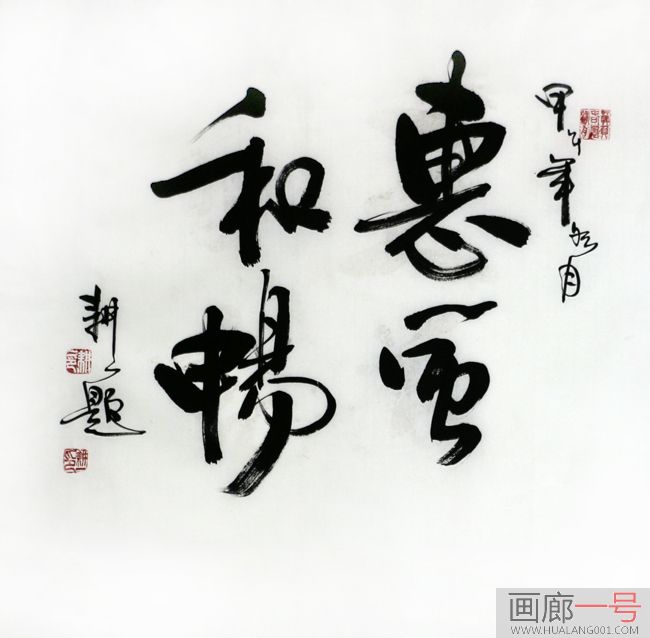 甲午年
月
惠風
和暢
耕之題
画廊一号
WWW.HUALANG001.COM